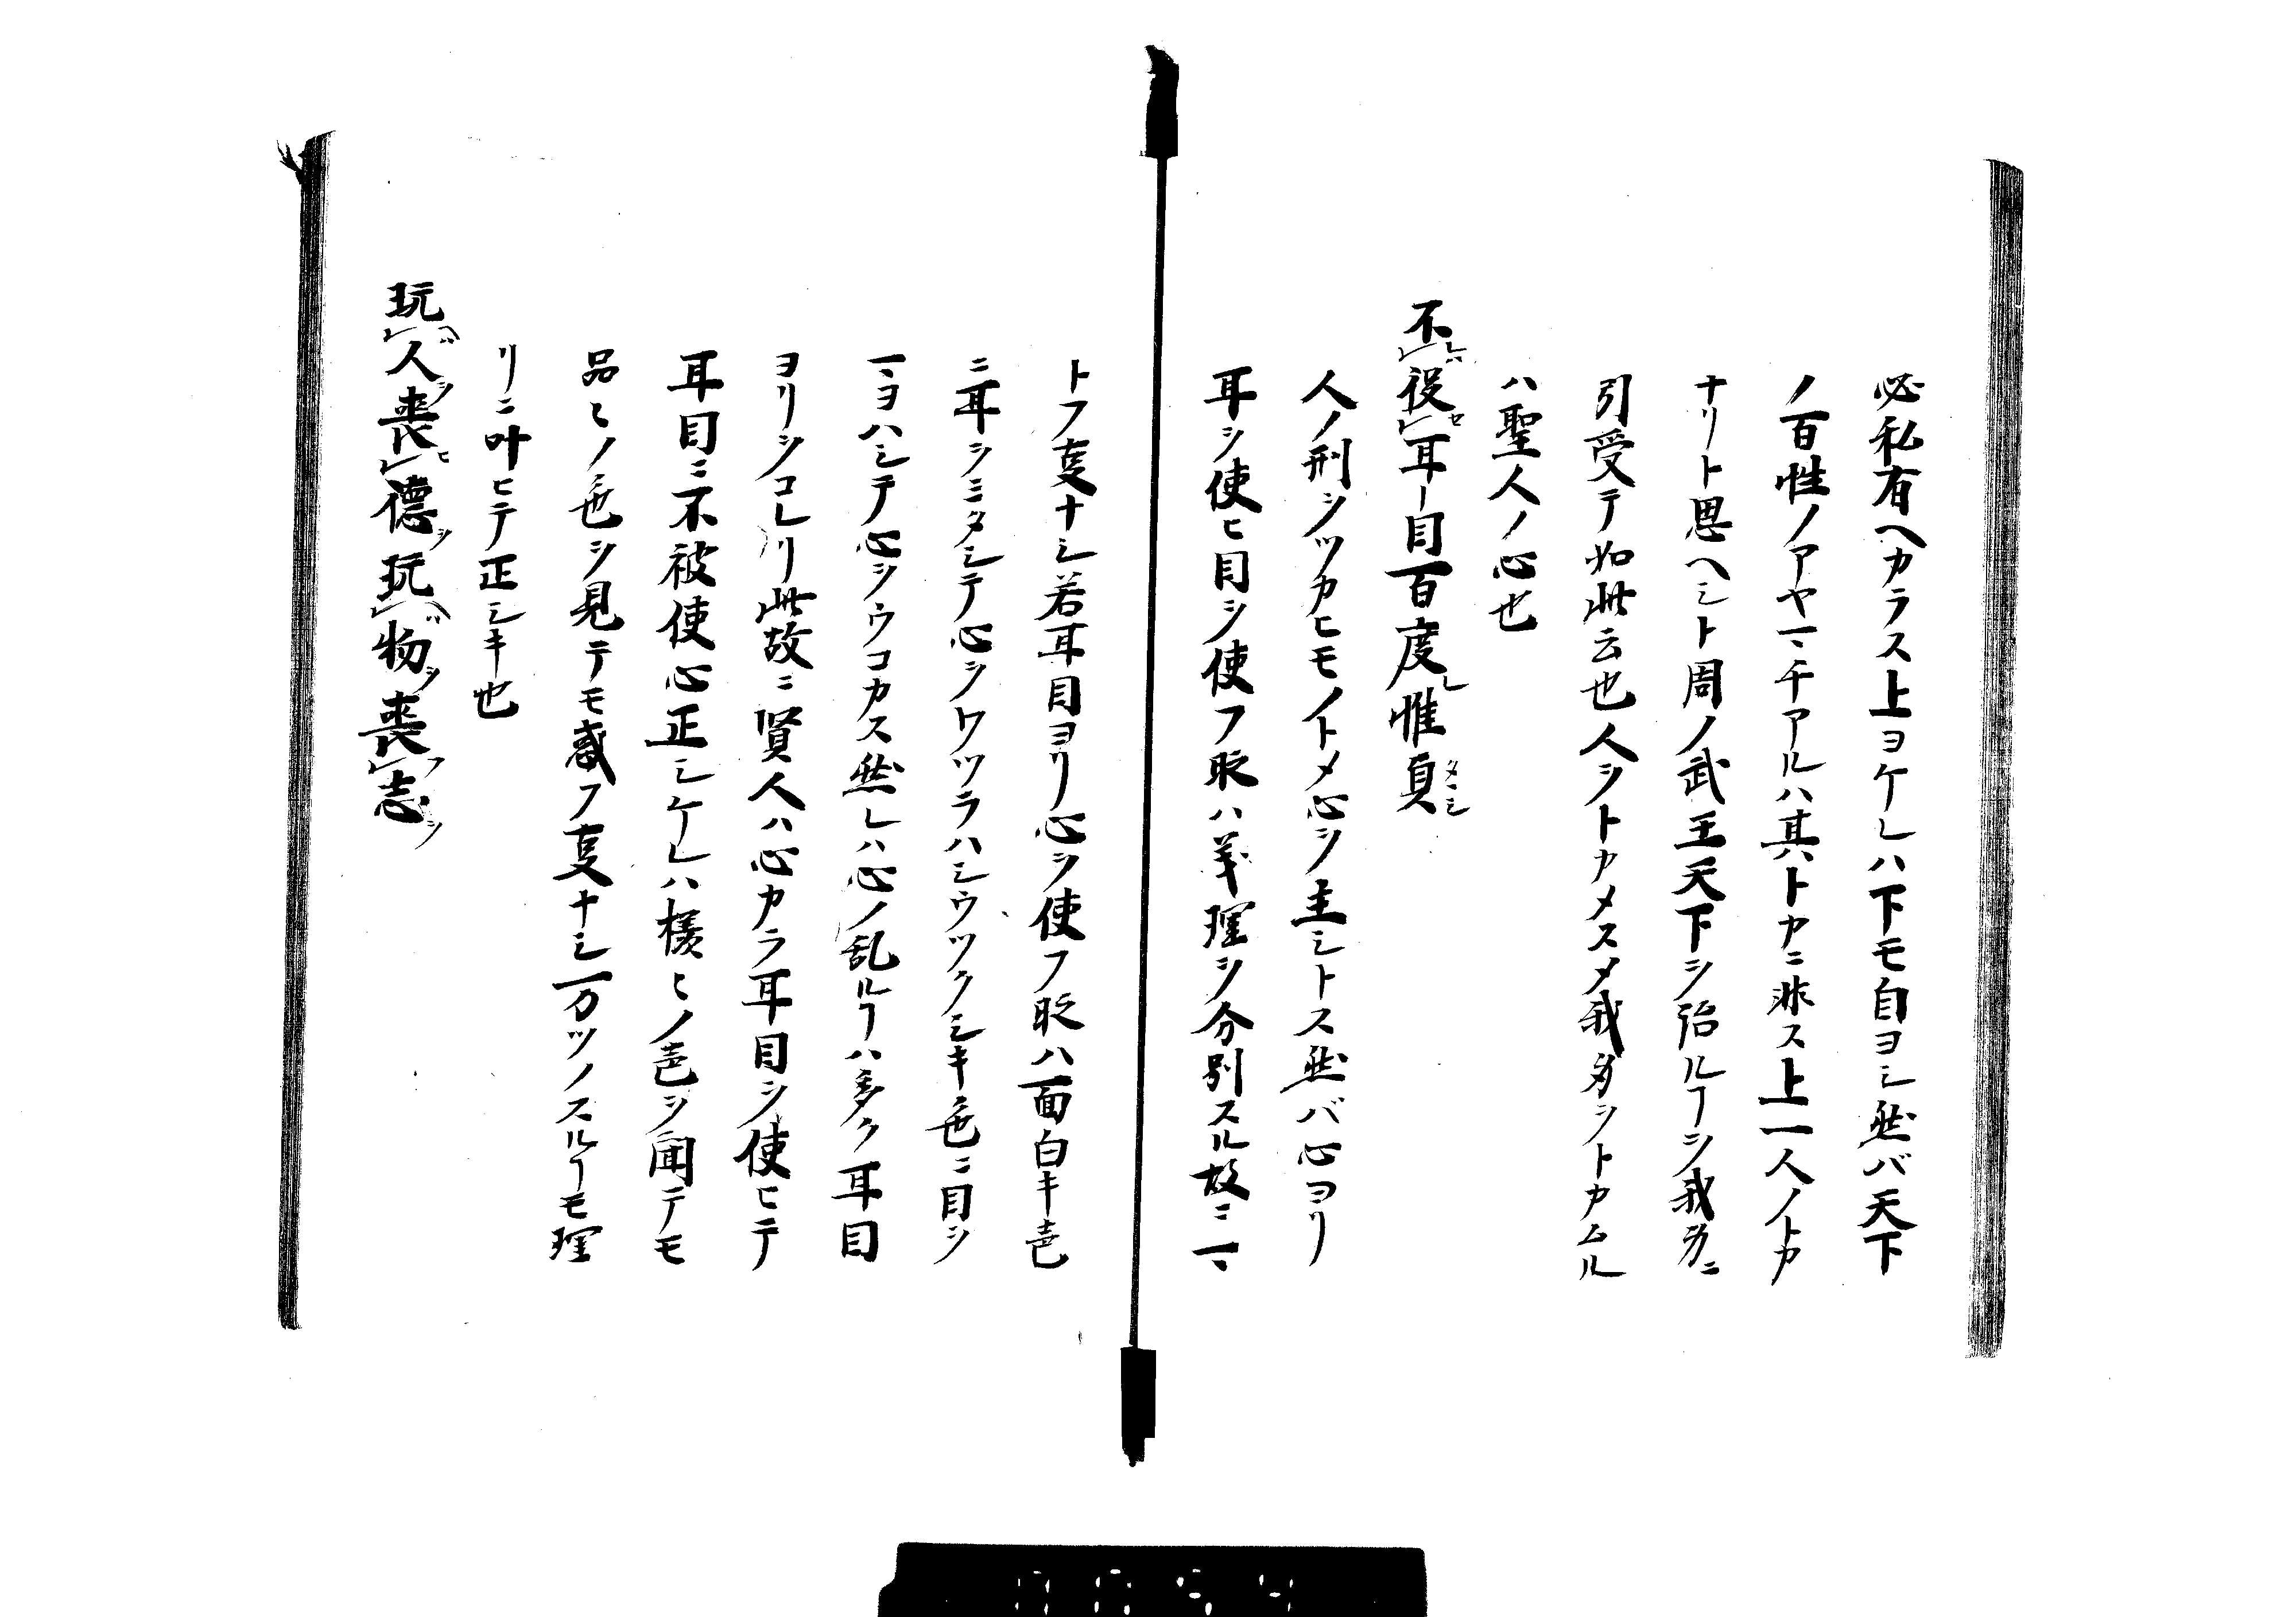 必私有ヘカラス上ヨケレハ下モ自ヨシ然バ天下
ノ百姓ノアヤマチアルハ其ハトカニ非ス上一人ノトカ
ナリト思ヘシト周ノ武王天下ヲ治ルヿヲ我身ニ
引受テ如此云也人ヲトカメスメ我身ヲトカムル
ハ聖人ノ心也
不レハ役セ耳ー目百度レ惟貞タヽシ
人ノ形ヲツカヒモノトメ心ヲ主シトス然バ心ヨリ
耳ヲ使ヒ目ヲ使フ时ハ義理ヲ分別スル故ニマ
トフ叓ナシ若耳目ヨリ心ヲ使フ时ハ面白キ声
ニ耳ヲミタシテ心ヲワツラハシウツクシキ色ニ目ヲ
マヨハシテ心ヲウコカス然レハ心ノ乱ルヿハ多ク耳目
ヨリヲコレリ此故ニ賢人ハ心カラ耳目ヲ使ヒテ
耳目ニ不被使心正シケレハ様〻ノ声ヲ聞テモ
品〻ノ色ヲ見テモ感フ叓ナシ一万ツノスルヿモ理
リニ叶ヒテ正シキ也
玩ヘハ人ヲ喪ヒ德ヲ玩ヘハ物ヲ喪フ志ヲ